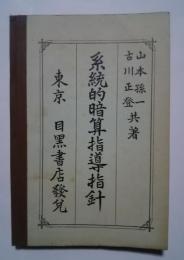 山本孫一
古川正登 共著
系統的暗算指導指針
東京 目黒書店發兌